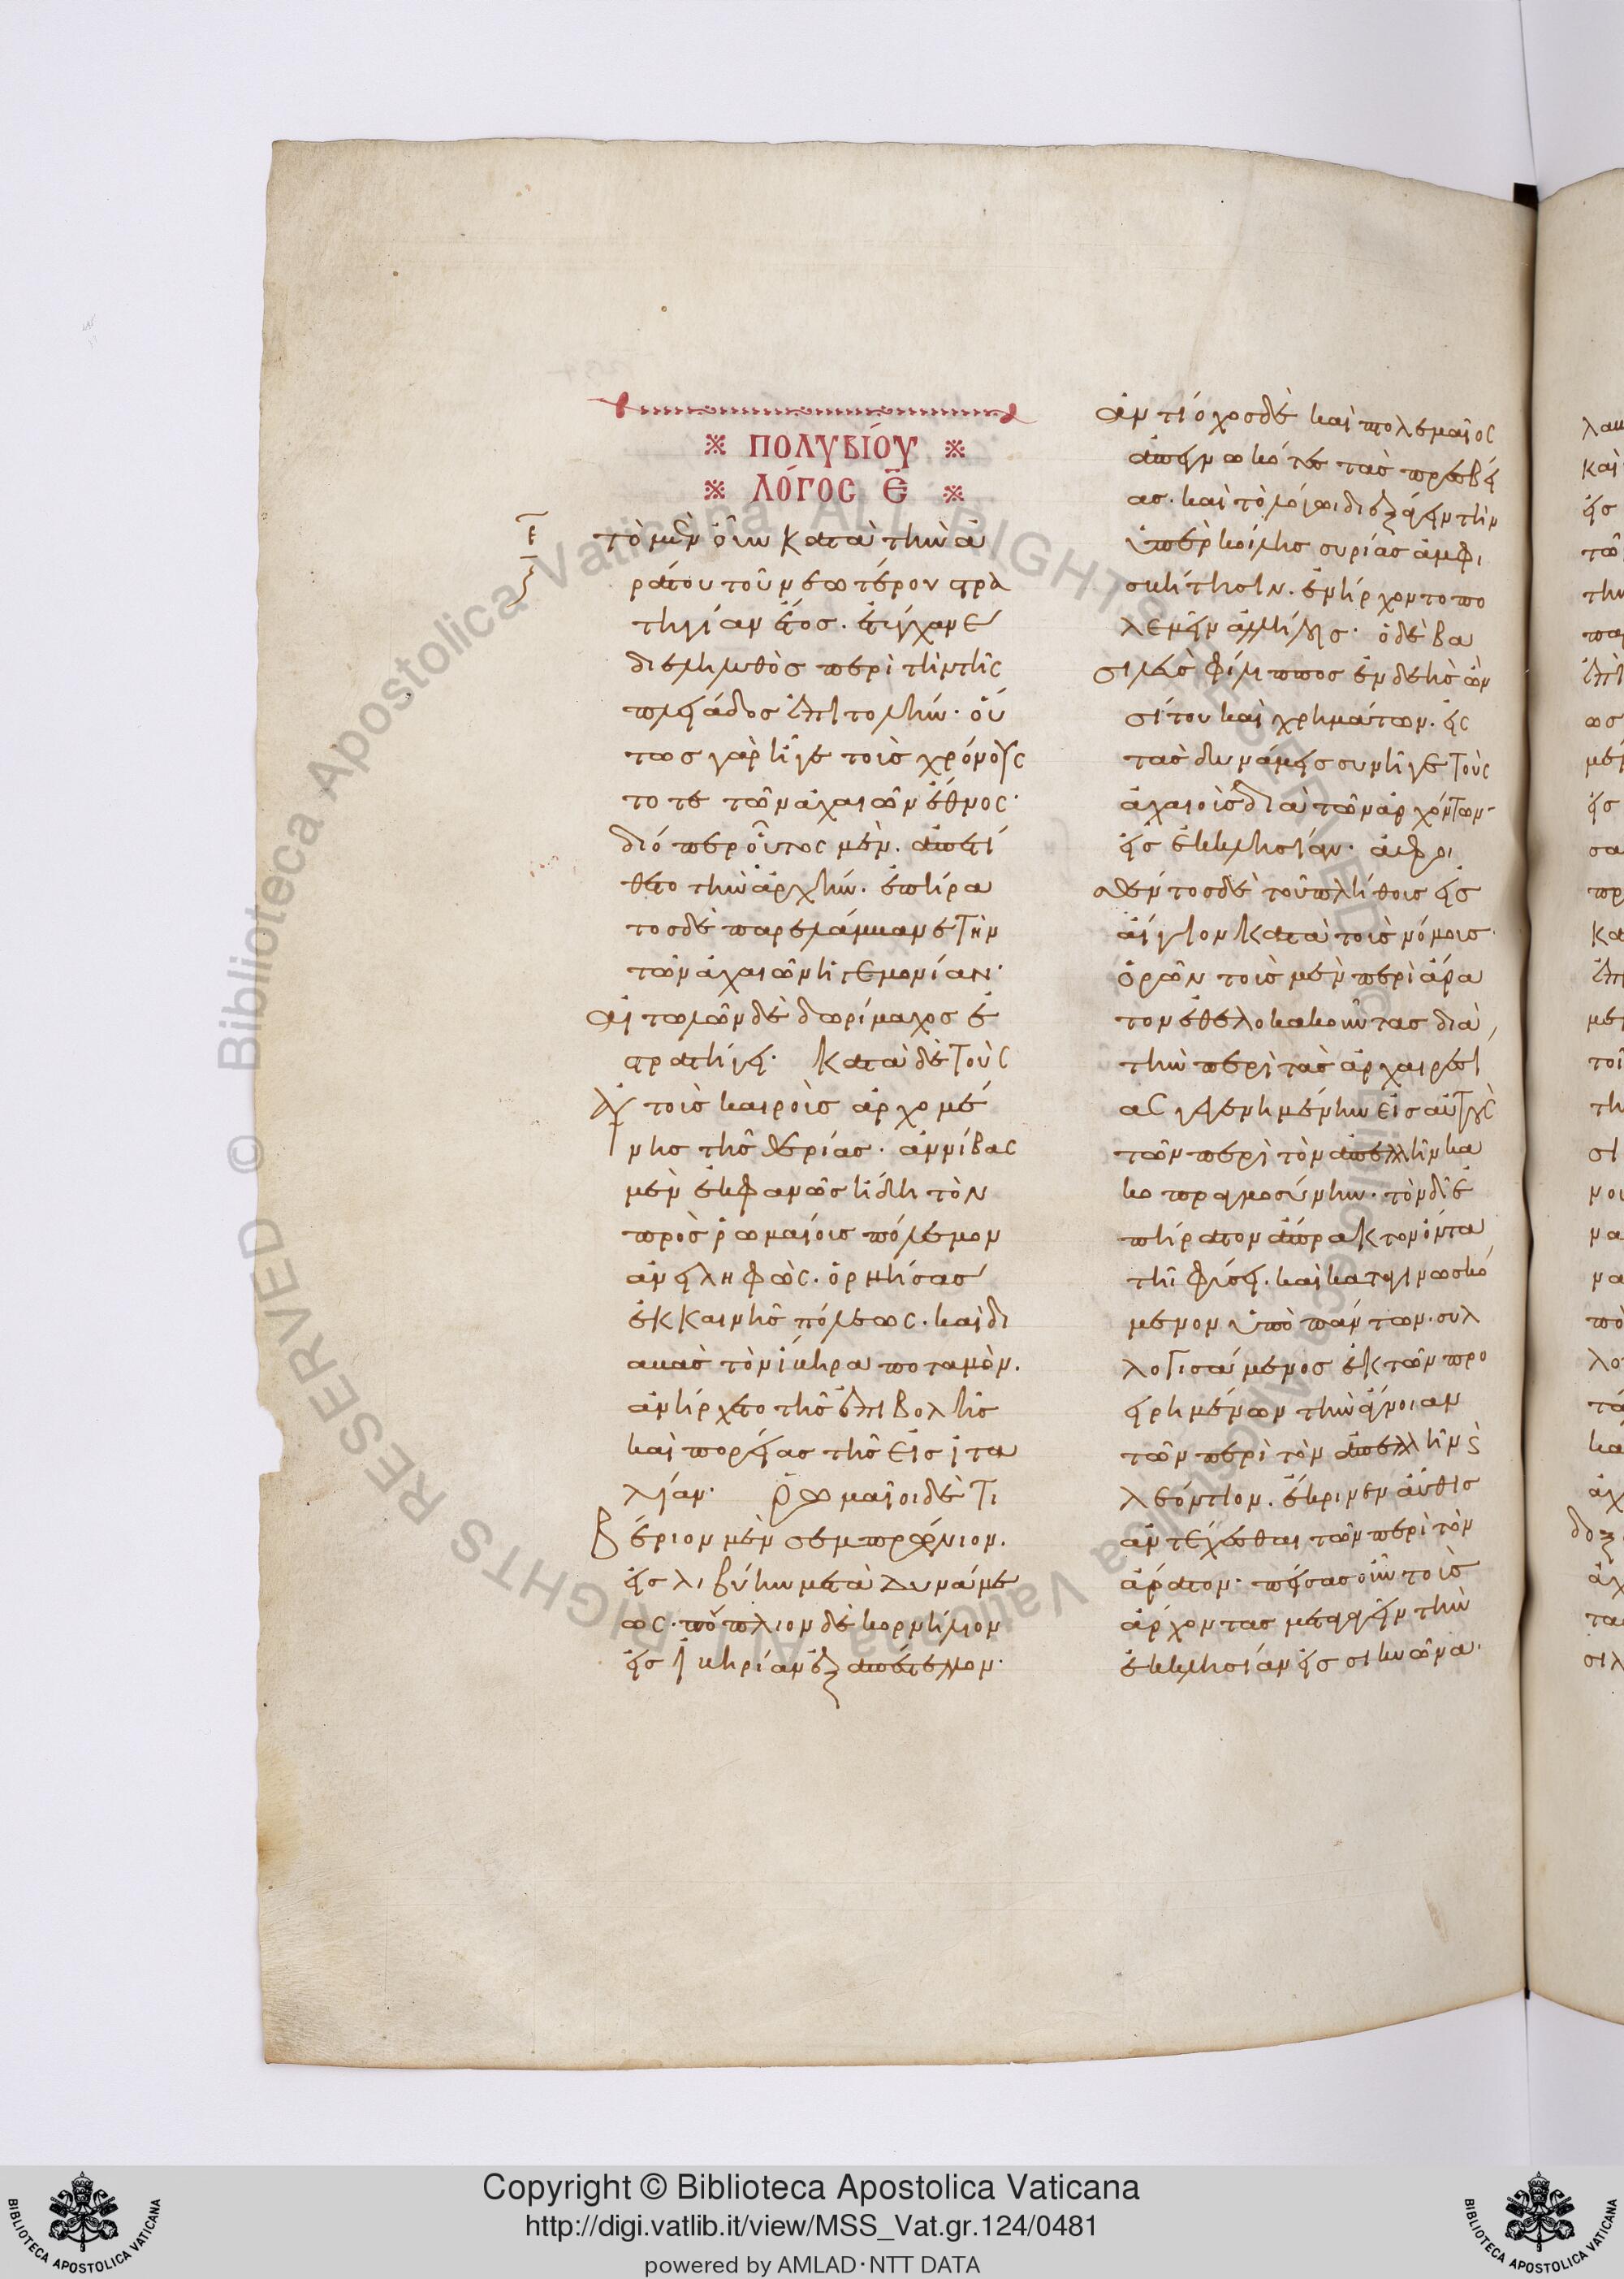 ※ ΠΟΛΥΒΊΟΥ ※
※ ΛΌΓΟΣ Ε̄ ※
τὸ μὲν οὖν κατὰ τὴν ἀ
ράτου τοῦ νεωτέρου στρα
τηγίαν ἔτος. ἐτύγχανε
διεληλυθὸς περὶ τὴν τῆς
πλειάδος ἐπιτολήν. οὕ
τως γὰρ ἦγε τοὺς χρόνους
τότε τῶν ἀχαιῶν ἔθνος·
διόπερ οὗτος μὲν. ἀπετί
θετο τὴν ἀρχήν. ἐπήρα
τος δὲ παρελάμβανε τὴν
τῶν ἀχαιῶν ἡγεμονίαν·
αἰτωλῶν δὲ δωρίμαχος ἐ
στρατήγει· κατὰ δὲ τοὺς
αὐτοὺς καιροὺς ἀρχομέ
νης τῆς θερίας· ἀννίβας
μὲν ἐκφανῶς ἤδη τὸν
πρὸς ῥωμαίους πόλεμον
ἀνειληφώς. ὁρμήσας
ἐκ καινῆς πόλεως. καὶ δι
αβὰς τὸν ἴβηρα ποταμὸν.
ἀνήρχετο τῆς ἐπιβολῆς
καὶ πορείας τῆς εἰς ἰτα
λίαν· ῥωμαῖοι δὲ τι
βέριον μὲν σεμπρώνιον.
εἰς λιβύην μετὰ δυνάμε
ως· πόπλιον δὲ κορνήλιον
εἰς ἰβηρίαν ἐξαπέστελλον·
ἀντίοχος δὲ καὶ πολεμαῖος
ἀπεγνωκότες τὰς πρεσβεί
ας. καὶ τὸ λόγωι διεξάγειν τὴν
ὑπὲρ κοίλης συρίας ἀμφι
σβήτησιν. ἐνήρχοντο πο
λεμεῖν ἀλλήλοις· ὁ δὲ βα
σιλεὺς φίλιππος ἐνδεὴς ὢν
σίτου καὶ χρημάτων. εἰς
τὰς δυνάμεις συνῆγε τοὺς
ἀχαιοὺς διὰ τῶν ἀρχόντων·
εἰς ἐκκλησίαν· ἀθροι
σθέντος δὲ τοῦ πλήθους εἰς
αἴγιον κατὰ τοὺς νόμους·
ὁρῶν τοὺς μὲν περὶ ἄρα
τον ἐθελοκακοῦντας διὰ
τὴν περὶ τὰς ἀρχαιρεσί
ας γεγενημένην εἰς αὐτοὺς
τῶν περὶ τὸν ἀπελλῆν κα
κοπραγμοσύνην· τὸν δ' ἐ
πήρατον ἄπρακτον ὄντα
τῆ φύσει. καὶ καταγινωσκό
μενον ὑπὸ πάντων· συλ
λογισάμενος ἐκ τῶν προ
ειρημένων τὴν ἄνοιαν
τῶν περὶ τὸν ἀπελλῆν καὶ
λεόντιον. ἔκρινεν αὖθις
ἀντέχεσθαι τῶν περὶ τὸν
ἄρατον· πείσας οὖν τοὺς
ἄρχοντας μεταγαγεῖν τὴν
ἐκκλησίαν εἰς σικυῶνα·
Copyright © Biblioteca Apostolica Vaticana
http://digi.vatlib.it/view/MSS_Vat.gr.124/0481
powered by AMLAD·NTT DATA